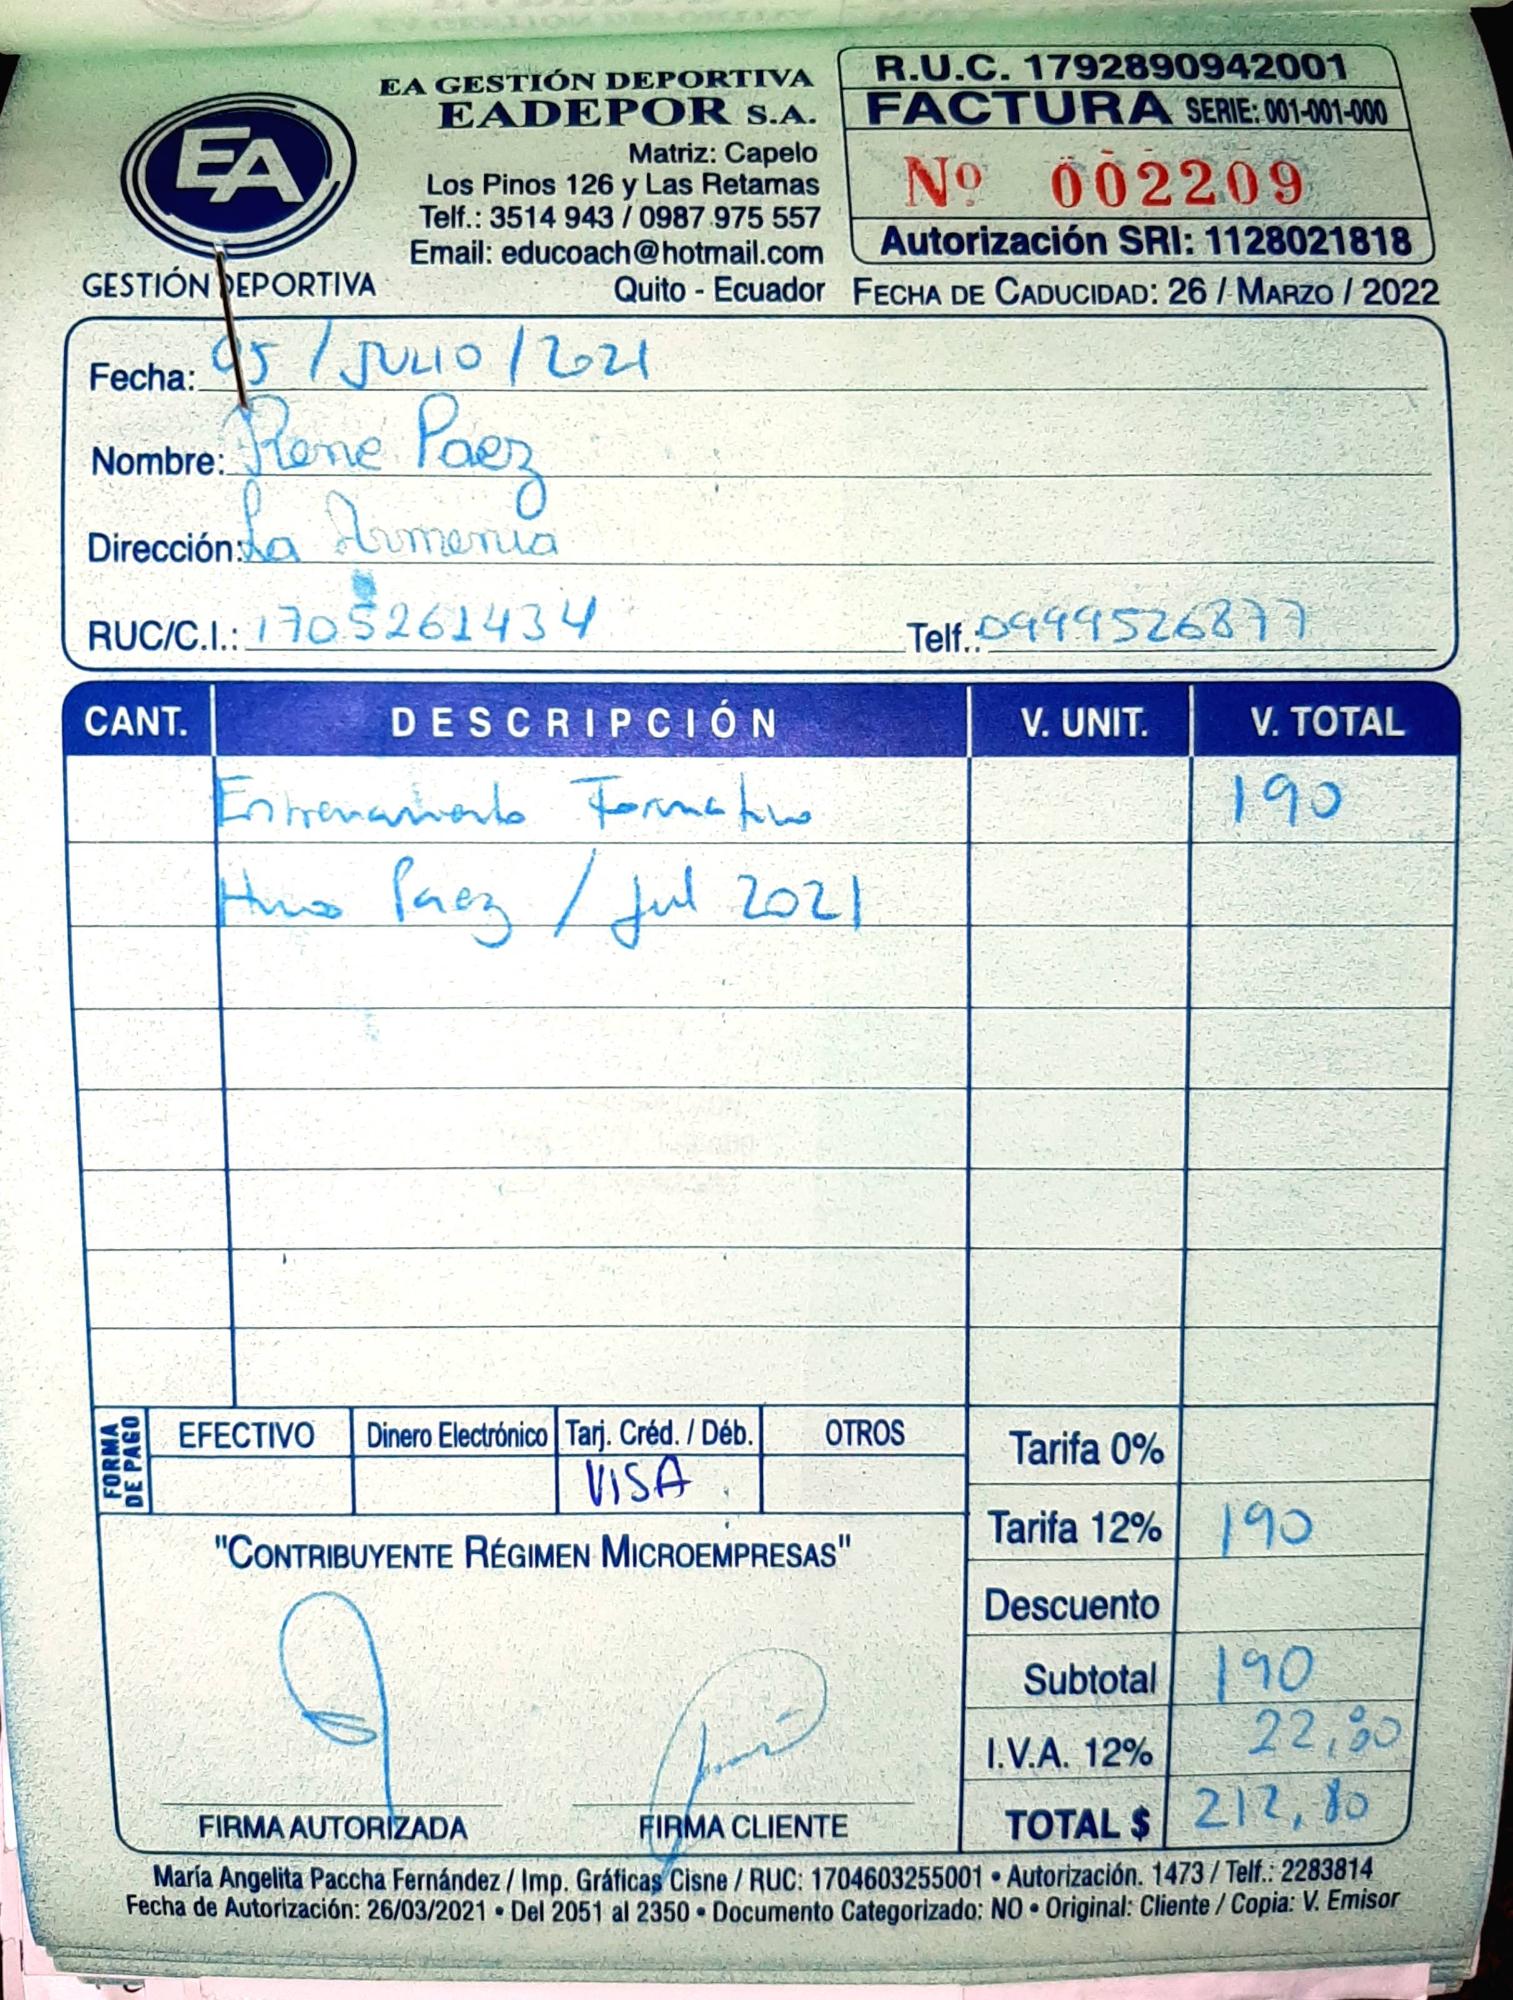 EA GESTIÓN DEPORTIVA
EADEPOR S.A.
Matriz: Capelo
Los Pinos 126 y Las Retamas
Telf.: 3514 943 / 0987 975 557
Email: educoach@hotmail.com
Quito - Ecuador
EA
GESTIÓN DEPORTIVA
R.U.C. 1792890942001
FACTURA SERIE: 001-001-000
Nº 002209
Autorización SRI: 1128021818
FECHA DE CADUCIDAD: 26 / MARZO / 2022
Fecha: 05 / JULIO / 2021
Nombre: Rene Paez
Dirección: La Armenia
RUC/C.I.: 1705261434 Telf.: 0999526877
CANT. DESCRIPCIÓN V. UNIT. V. TOTAL
Entrenamiento Formativo 190
Hnos Paez / Jul 2021
FORMA DE PAGO
EFECTIVO Dinero Electrónico Tarj. Créd. / Déb. OTROS
VISA
Tarifa 0%
Tarifa 12% 190
Descuento
Subtotal 190
I.V.A. 12% 22,80
TOTAL $ 212,80
"CONTRIBUYENTE RÉGIMEN MICROEMPRESAS"
FIRMA AUTORIZADA FIRMA CLIENTE
María Angelita Paccha Fernández / Imp. Gráficas Cisne / RUC: 1704603255001 • Autorización. 1473 / Telf.: 2283814
Fecha de Autorización: 26/03/2021 • Del 2051 al 2350 • Documento Categorizado: NO • Original: Cliente / Copia: V. Emisor